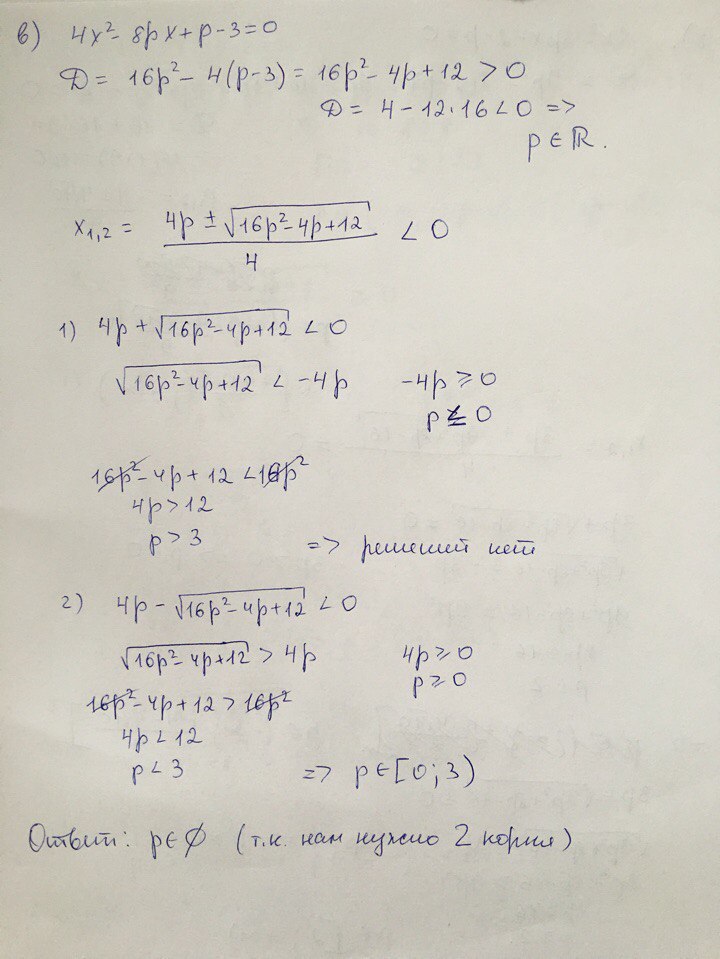 в) 4x² - 8px + p - 3 = 0
D = 16p² - 4(p-3) = 16p² - 4p + 12 > 0
D = 4 - 12·16 < 0 =>
p ∈ ℝ.
x₁,₂ = (4p ± √(16p² - 4p + 12)) / 4 < 0
1) 4p + √(16p² - 4p + 12) < 0
√(16p² - 4p + 12) < -4p    -4p ≥ 0
p ≤ 0
16p² - 4p + 12 < 16p²
4p > 12
p > 3    => решений нет
2) 4p - √(16p² - 4p + 12) < 0
√(16p² - 4p + 12) > 4p    4p ≥ 0
p ≥ 0
16p² - 4p + 12 > 16p²
4p < 12
p < 3    => p ∈ [0; 3)
Ответ: p ∈ ∅ (т.к. нам нужно 2 корня)